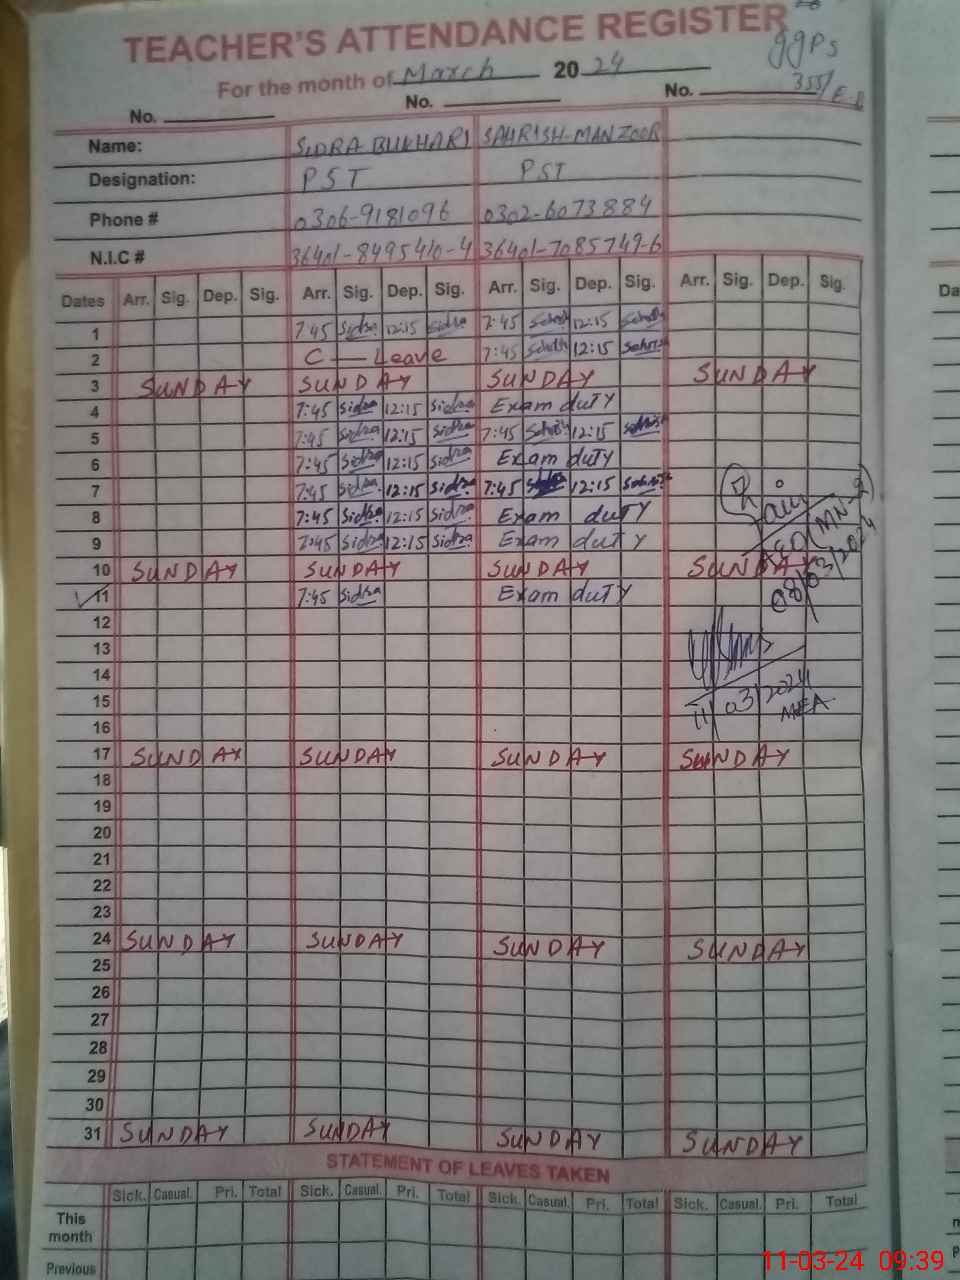 TEACHER'S ATTENDANCE REGISTER
ggPS
For the month of March 2024
355/E-B
No. No. No.
Name: SIDRA BUKHARI SAHRISH-MANZOOR
Designation: PST PST
Phone # 0306-9181096 0302-6073884
N.I.C # 36401-8495410-4 36401-7085749-6
Dates Arr. Sig. Dep. Sig. Arr. Sig. Dep. Sig. Arr. Sig. Dep. Sig. Arr. Sig. Dep. Sig.
1 7:45 Sidra 12:15 Sidra 7:45 12:15
2 C — Leave 7:45 12:15 Sahrish
3 SUNDAY SUNDAY SUNDAY SUNDAY
4 7:45 Sidra 12:15 Sidra Exam duty
5 7:45 Sidra 12:15 Sidra 7:45 12:15
6 7:45 Sidra 12:15 Sidra Exam duty
7 7:45 Sidra 12:15 Sidra 7:45 12:15 Sahrish
8 7:45 Sidra 12:15 Sidra Exam duty
9 7:45 Sidra 12:15 Sidra Exam duty
(MN-2)
10 SUNDAY SUNDAY SUNDAY SUNDAY
08/03/2024
11 7:45 Sidra Exam duty
12
13
14
15
11/03/2024
MEA
16
17 SUNDAY SUNDAY SUNDAY SUNDAY
18
19
20
21
22
23
24 SUNDAY SUNDAY SUNDAY SUNDAY
25
26
27
28
29
30
31 SUNDAY SUNDAY SUNDAY SUNDAY
STATEMENT OF LEAVES TAKEN
Sick. Casual. Pri. Total Sick. Casual. Pri. Total Sick. Casual. Pri. Total Sick. Casual. Pri. Total
This
month
Previous
Da
11-03-24 09:39